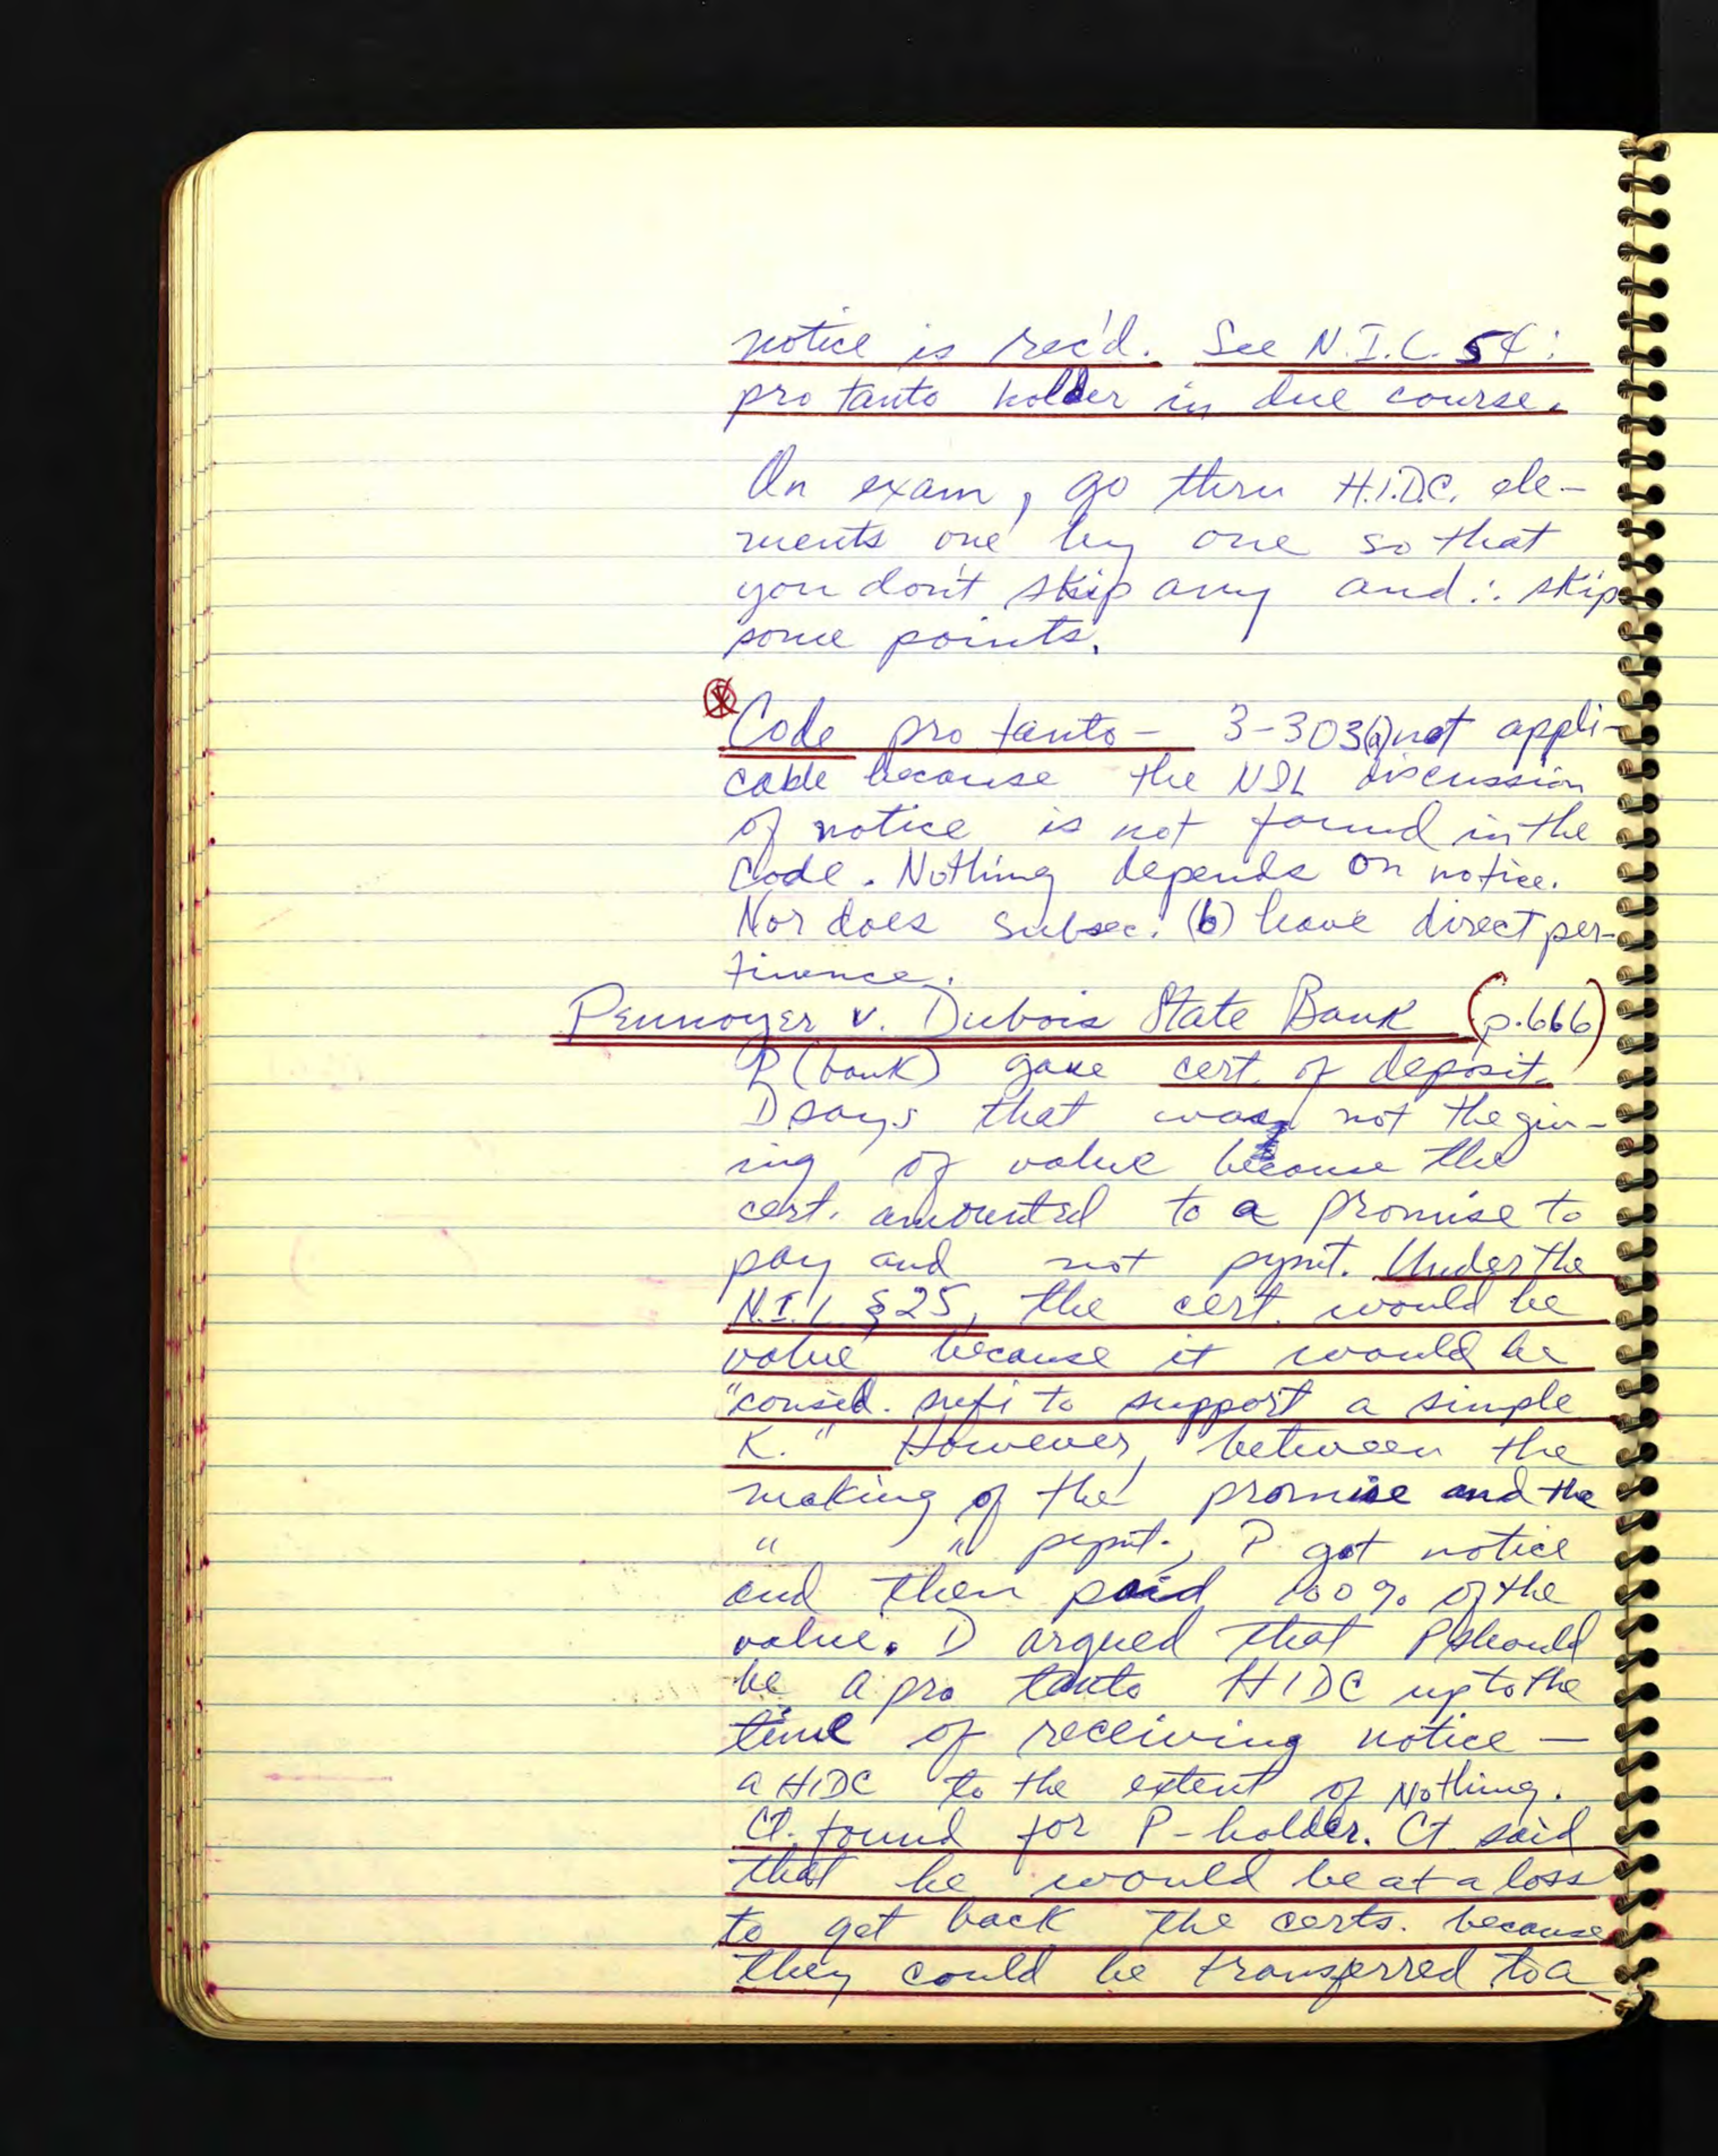 notice is rec'd. See N.I.L. 54:
pro tanto holder in due course.
On exam, go thru H.I.D.C. ele-
ments one by one so that
you don't skip any and ∴ skip
some points.
Code pro tanto – 3-303(a) not appli-
cable because the NIL discussion
of notice is not found in the
Code. Nothing depends on notice.
Nor does subsec. (b) have direct per-
tinence.
Pennoyer v. Dubois State Bank (p.666)
P (bank) gave cert. of deposit.
D says that was not the giv-
ing of value because the
cert. amounted to a promise to
pay and not pymt. Under the
N.I.L. §25, the cert. would be
value because it would be
"consid. sufi to support a simple
K." However, between the
making of the promise and the
" " pymt., P got notice
and then paid 100% of the
value. D argued that P should
be a pro tanto HIDC up to the
time of receiving notice –
a HIDC to the extent of Nothing.
Ct. found for P-holder. Ct said
that he would be at a loss
to get back the certs. because
they could be transferred to a